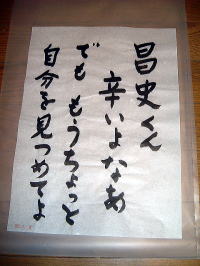 昌史くん
辛いよなあ
でも もうちょっと
自分を見つめてよ